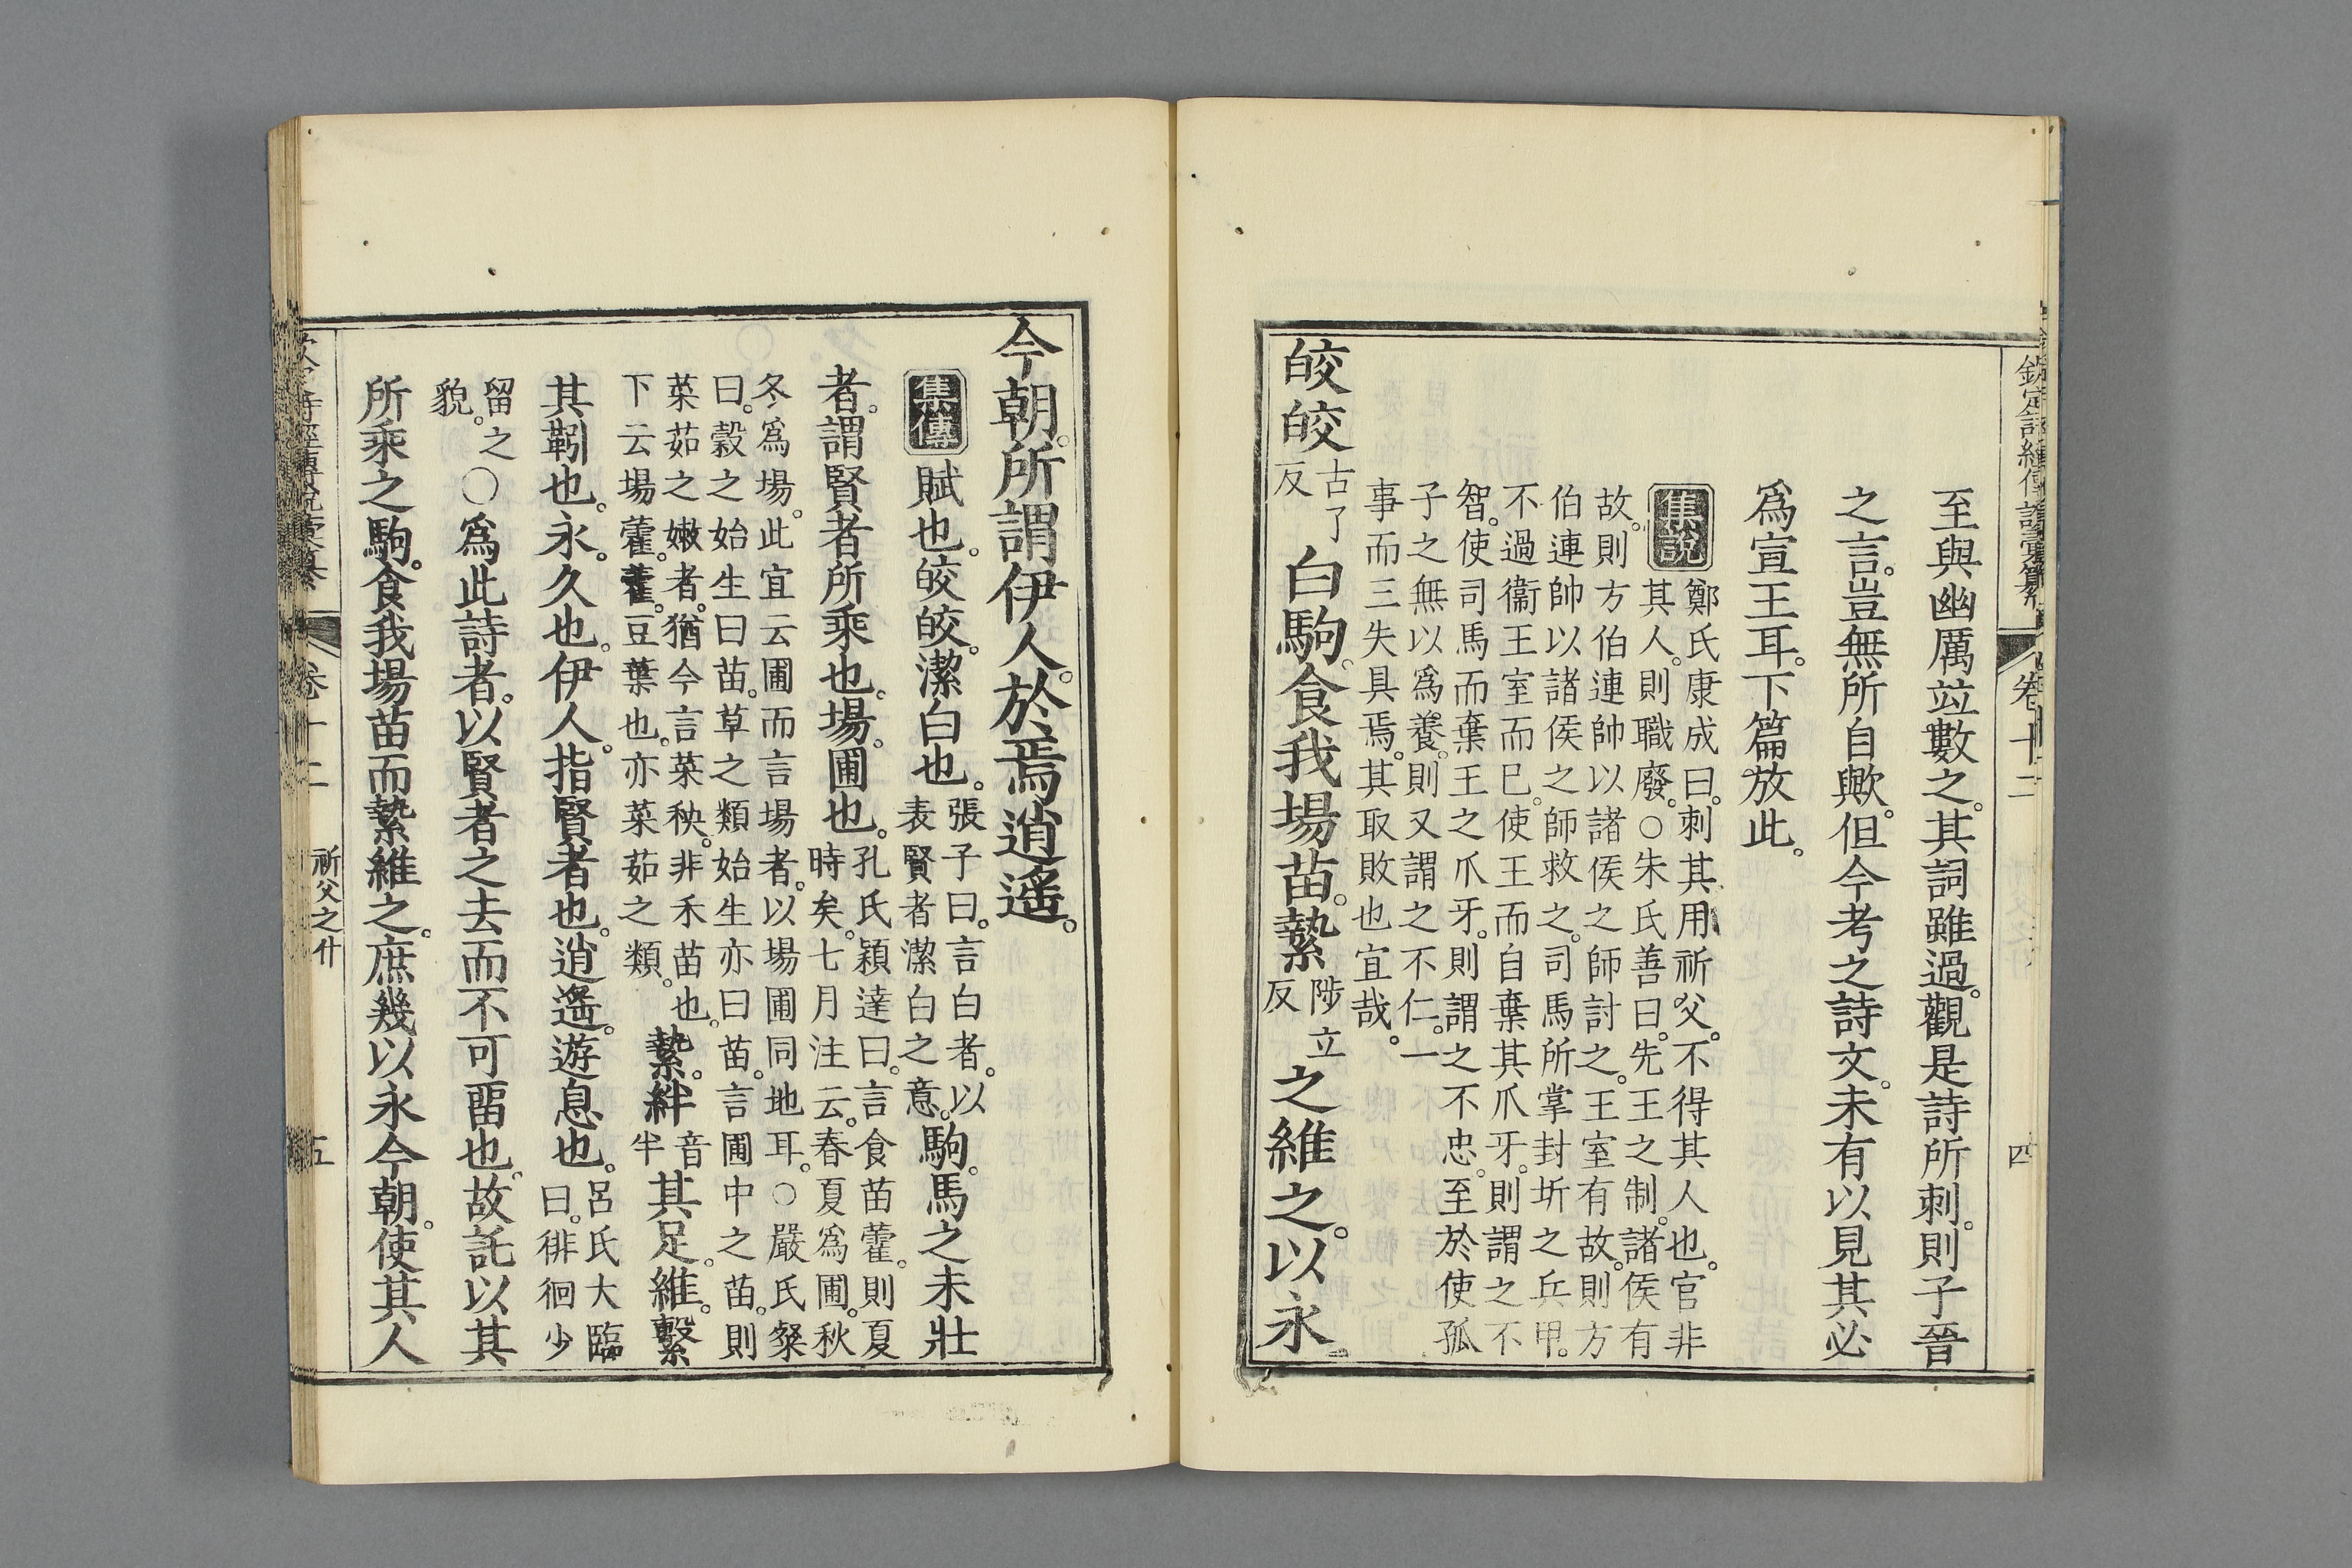 欽定詩經傳說彙纂 卷十二 四
至與幽厲竝數之。其詞雖過。觀是詩所刺。則子晉
之言。豈無所自歟。但今考之詩文。未有以見其必
爲宣王耳。下篇放此。
集說
鄭氏康成曰。刺其用祈父。不得其人也。官非
其人。則職廢。○朱氏善曰。先王之制。諸侯有
故。則方伯連帥以諸侯之師討之。王室有故。則方
伯連帥以諸侯之師救之。司馬所掌封圻之兵甲。
不過衞王室而已。使王而自棄其爪牙。則謂之不
智。使司馬而棄王之爪牙。則謂之不忠。至於使孤
子之無以爲養。則又謂之不仁。一
事而三失具焉。其取敗也宜哉。
皎皎古了反白駒。食我場苗。縶陟立反之維之。以永
今朝。所謂伊人。於焉逍遙。
集傳
賦也。皎皎。潔白也。張子曰。言白者。以
表賢者潔白之意。駒。馬之未壯
者。謂賢者所乘也。場。圃也。孔氏穎達曰。言食苗藿。則夏
時矣。七月注云。春夏爲圃。秋
冬爲場。此宜云圃而言場者。以場圃同地耳。○嚴氏粲
曰。穀之始生曰苗。草之類始生亦曰苗。言圃中之苗。則
菜茹之嫩者。猶今言菜秧。非禾苗也。
下云場藿。藿。豆葉也。亦菜茹之類。縶。絆音半其足。維。繫
其靷也。永。久也。伊人。指賢者也。逍遙。遊息也。呂氏大臨
曰。徘徊少
留之
貌。○爲此詩者。以賢者之去而不可畱也。故託以其
所乘之駒。食我場苗而縶維之。庶幾以永今朝。使其人
卷十二 祈父之什 五